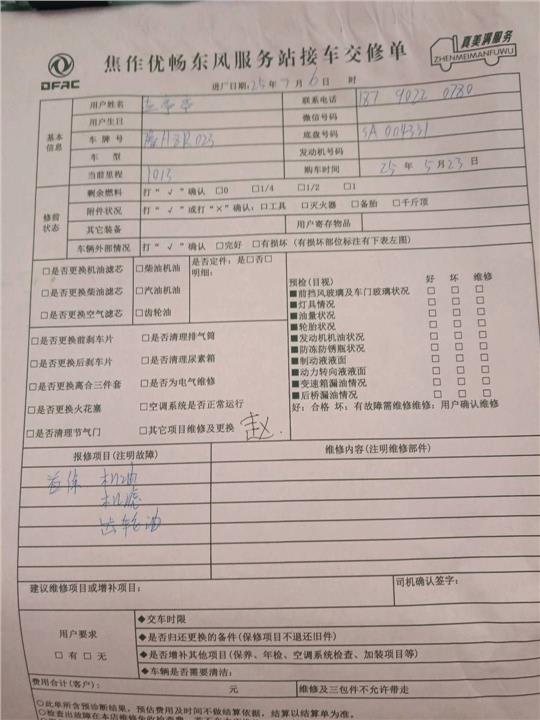 DFAC
焦作优畅东风服务站接车交修单
真美满服务
ZHENMEIMANFUWU
进厂日期:25年7月6日 时
基本信息
用户姓名 联系电话 187 9022 0780
用户生日 微信号码
车牌号 豫H3R023 底盘号码 SA004331
车型 发动机号码
当前里程 1013 购车时间 25年5月23日
修前状态
剩余燃料 打“√”确认 □0 □1/4 □1/2 □1
附件状况 打“√”或打“×”确认:□工具 □灭火器 □备胎 □千斤顶
其它装备 用户寄存物品
车辆外部情况 打“√”确认 □完好 □有损坏(有损坏部位标注有下表左图)
□是否更换机油滤芯 □柴油机油 是否定件:是□否□
明细:
□是否更换柴油滤芯 □汽油机油
□是否更换空气滤芯 □齿轮油
预检(目视) 好 坏 维修
■前挡风玻璃及车门玻璃状况 □ □ □
■灯具情况 □ □ □
■油量状况 □ □ □
■轮胎状况 □ □ □
■发动机机油状况 □ □ □
■防冻防锈瓶状况 □ □ □
■制动液液面 □ □ □
■动力转向液液面 □ □ □
■变速箱漏油情况 □ □ □
■后桥漏油情况 □ □ □
好:合格 坏:有故障需维修维修:用户确认维修
□是否更换前刹车片 □是否清理排气筒
□是否更换后刹车片 □是否清理尿素箱
□是否更换离合三件套 □是否为电气维修
□是否更换火花塞 □空调系统是否正常运行
□是否清理节气门 □其它项目维修及更换 赵
报修项目(注明故障) 维修内容(注明维修部件)
首保 机油
机滤
齿轮油
建议维修项目或增补项目: 司机确认签字:
用户要求
□有 □无
◆交车时限
◆是否归还更换的备件(保修项目不退还旧件)
◆是否增补其他项目(保养、年检、空调系统检查、加装项目等)
◆车辆是否需要清洁:
费用合计(客户): 元 维修及三包件不允许带走
◇此单所含预诊断结果,预估费用及时间不做结算依据,结算以结算单为准。